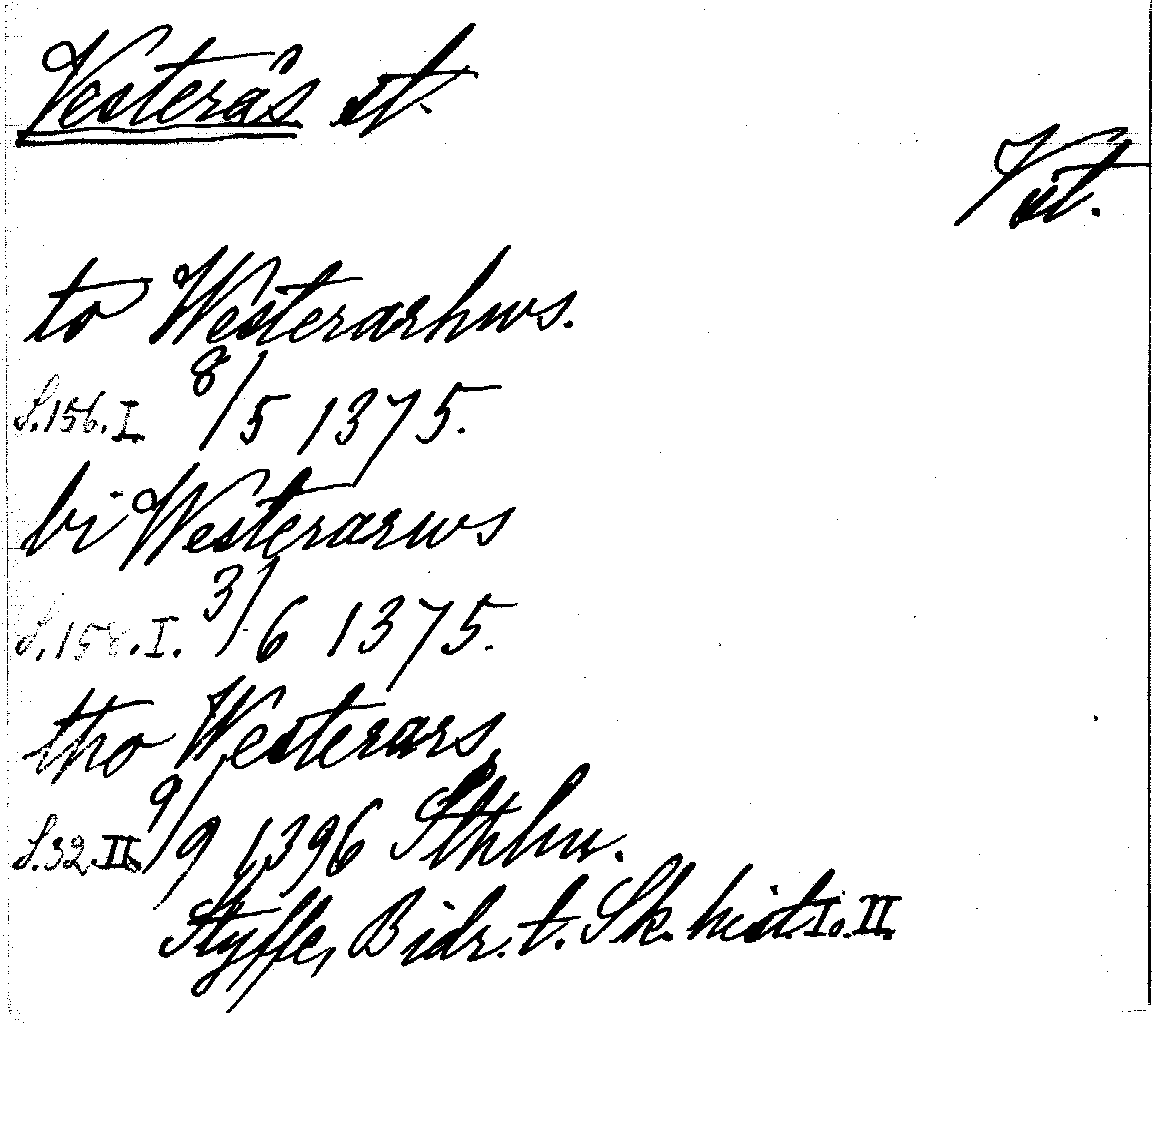 Vesterås st.
Vst.
to Westerarhws.
S.156.I. 8/5 1375.
bi Westerarws
S.158.I. 3/6 1375.
tho Westerars,
S.32.II. 9/9 1396 Sthlm.
Styffe, Bidr. t. Sk. hist. I. o. II.